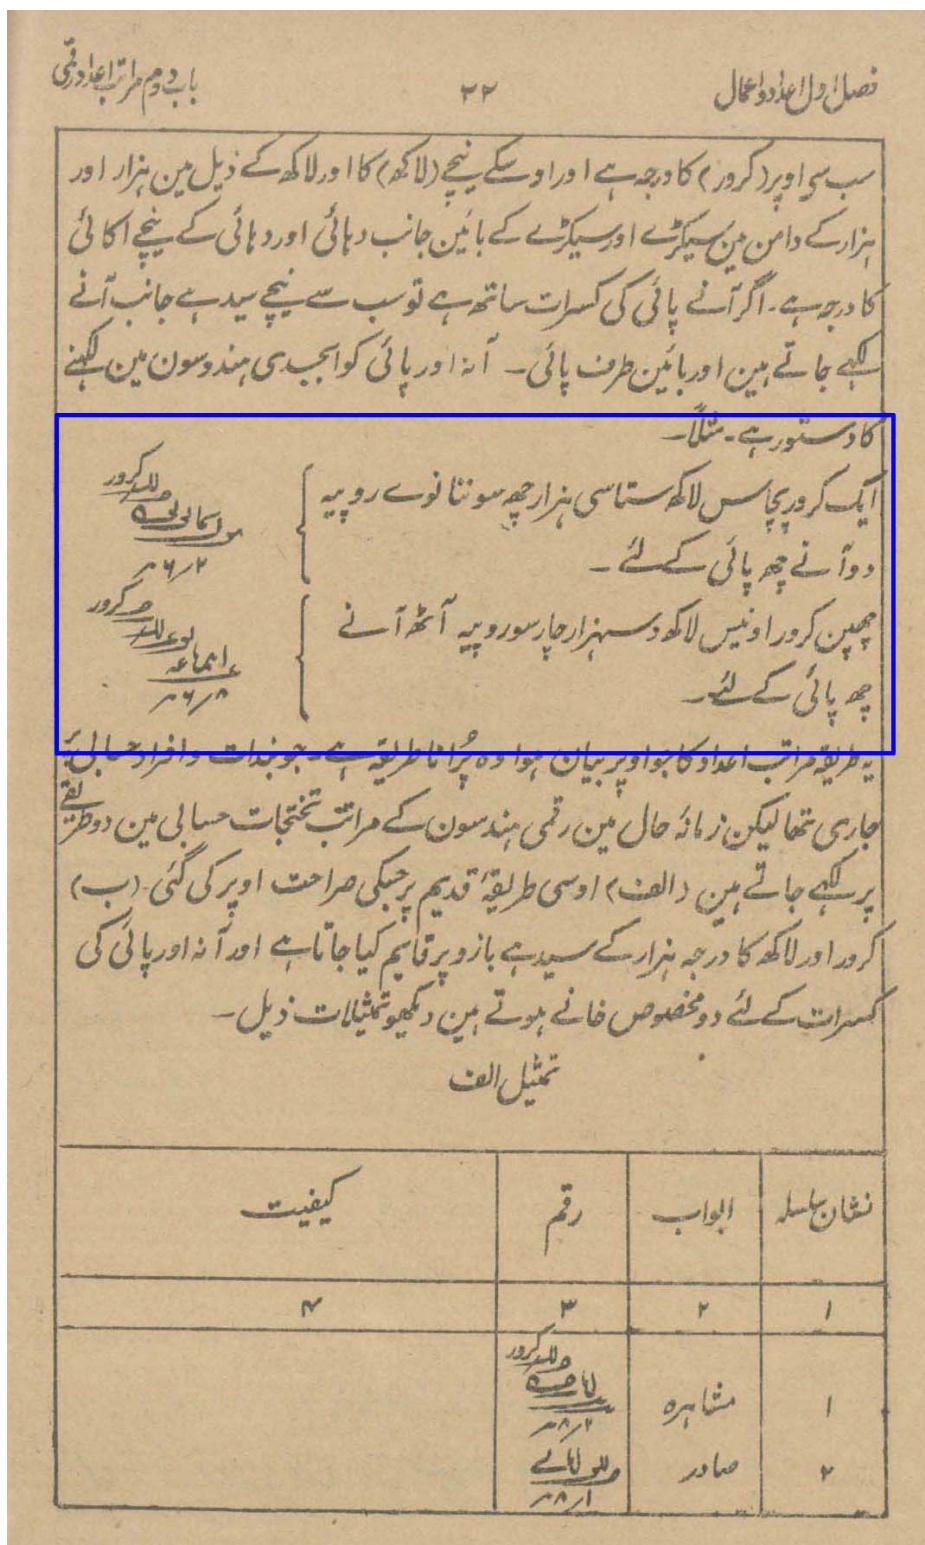 فصل اول اعداد و اعمال
۲۲
باب دوم مراتب اعداد رقمی
سب سے اوپر (کرور) کا درجہ ہے اور اوسکے نیچے (لاکھ) کا اور لاکھ کے ذیل مین ہزار اور
ہزار کے دامن مین سیکڑے اور سیکڑے کے بائین جانب دہائی اور دہائی کے نیچے اکائی
کا درجہ ہے ۔ اگر آنے پائی کی کسرات ساتھ ہے تو سب سے نیچے سیدہے جانب آنے
لکہے جاتے ہین اور بائین طرف پائی ۔ آنہ اور پائی کو ابجدی ہندوسون مین لکہنے
کا دستور ہے ۔ مثلاً ۔
ایک کرور پچاس لاکھ ستاسی ہزار چھ سو ننانوے روپیہ
دو آنے چھ پائی کے لئے ۔
کرور
۲/۶
چھپن کرور اونیس لاکھ دسہزار چار سو روپیہ آٹھ آنے
چھ پائی کے لئے ۔
کرور
۸/۶
یہ طریقہ مراتب اعداد کا جو اوپر بیان ہوا وہ پُرانا طریقہ ہے ۔ جو بندات و افراد حسابی پر
جاری تھا لیکن زمانۂ حال مین رقمی ہندسون کے مراتب تختجات حسابی مین دو طریقے
پر لکہے جاتے ہین (الف) اوسی طریقۂ قدیم پر جسکی صراحت اوپر کی گئی ۔ (ب)
کرور اور لاکھ کا درجہ ہزار کے سیدہے بازو پر قایم کیا جاتا ہے اور آنہ اور پائی کی
کسرات کے لئے دو مخصوص خانے ہوتے ہین دیکھو تمثیلات ذیل ۔
تمثیل الف
نشان سلسلہ ابواب رقم کیفیت
۱ ۲ ۳ ۴
۱ مشاہرہ کرور
۲/۸
۲ صادر
۱/۸